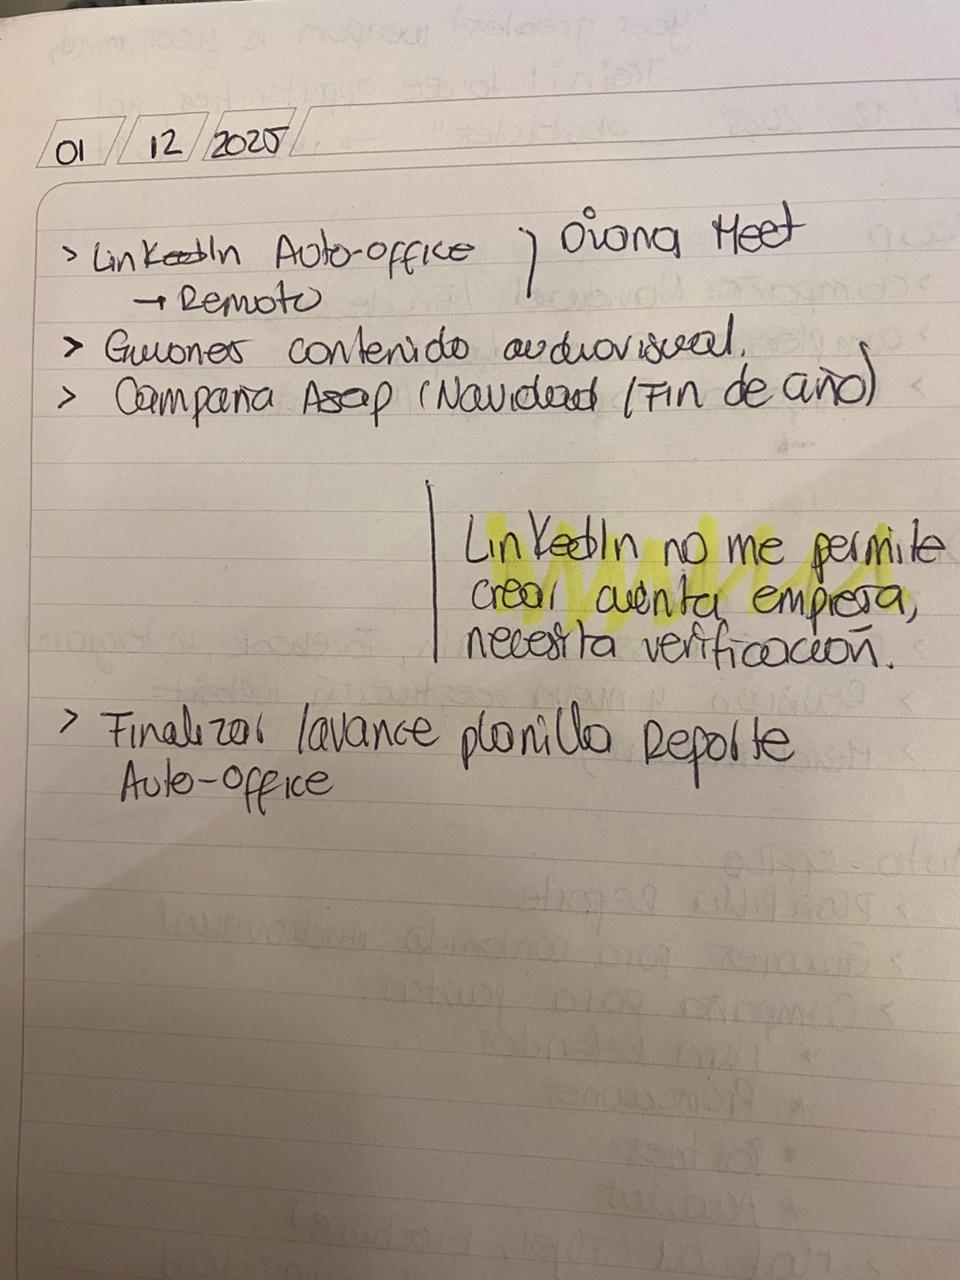 01 12 2025
> LinkedIn Auto-office } Diana Meet
→ Remoto
> Guiones contenido audiovisual.
> Campaña Asap (Navidad / Fin de año)
LinkedIn no me permite
crear cuenta empresa,
necesita verificación.
> Finalizar /avance planilla Reporte
Auto-office